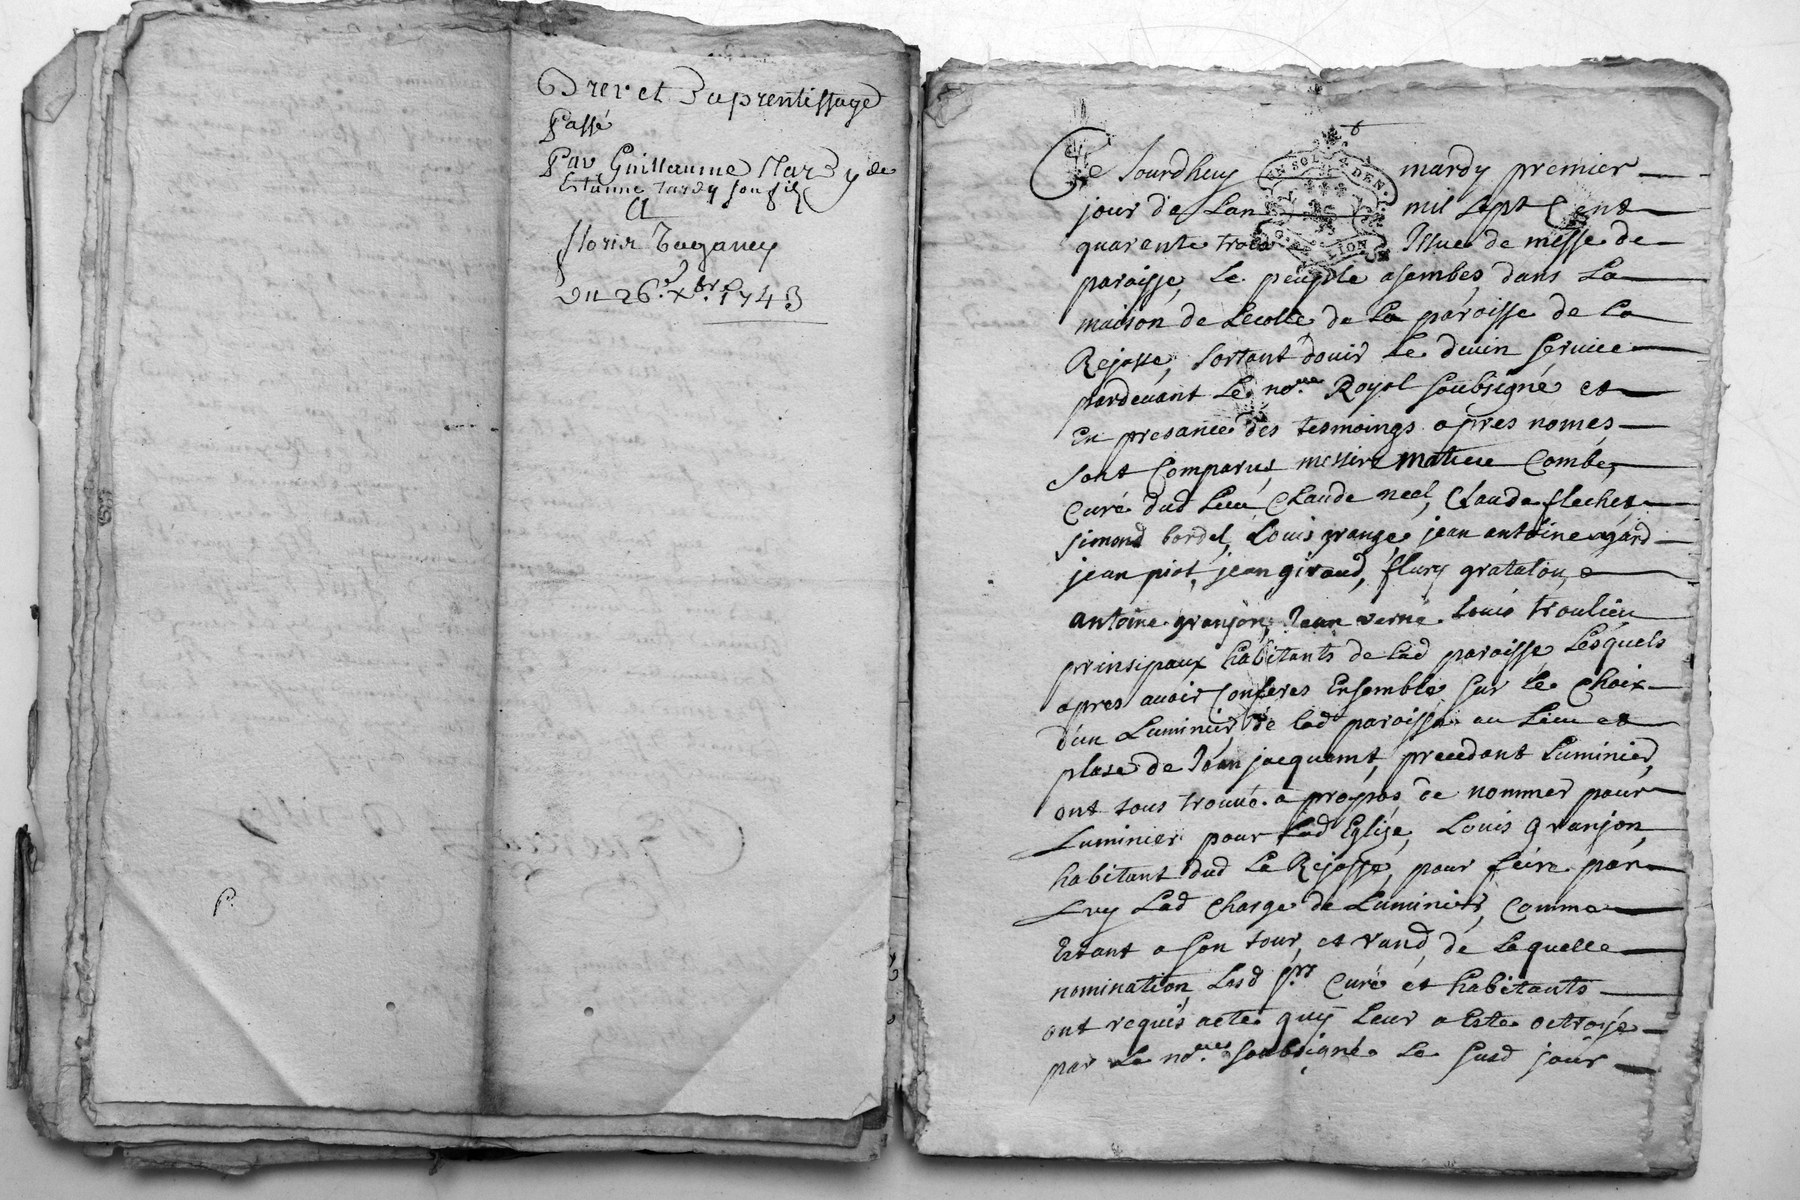 Brevet Daprentissage
Passé
Par Guillaume Tardy de
Estienne tardy son fil
A
florir
Du 26e. Xbre. 1743
P.
Ce Jourdhuy mardy premier
jour de Lan mil sept Cent
quarente trois Issue de messe de
paroisse, Le peuple asembes dans La
maison de Lecolle de La paroisse de La
Rejasse, sortant douir Le divin service
pardevant Le nore. Royal soubsigné et
En presance des tesmoings apres només
sont Comparus messire matieu Combe,
Curé dud Lieu, Claude neel, Claude flechet
simond bordel, Louis grange jean antoine agard
jean piot, jean giraud, flury gratalou,
antoine granjon, Jean verne Louis troulieu
prinsipaux habitants de lad paroisse Lesquels
apres avoir Conferes Ensemble sur le Choix
dun Luminier de lad paroisse au Lieu et
plase de Jean jacquemt, precedant Luminier,
ont tous trouvé a propos de nommer pour
Luminier pour Lad Eglise, Louis granjon,
habitant dud La Rejasse, pour feire par
Luy Lad Charge de Luminier, Comme
Estant a son tour, et rand, de Laquelle
nomination Lesd srs. Curé et habitants
ont requis acte quy Leur a Este octroyé
par Le nore. soubsigné Le susd jour